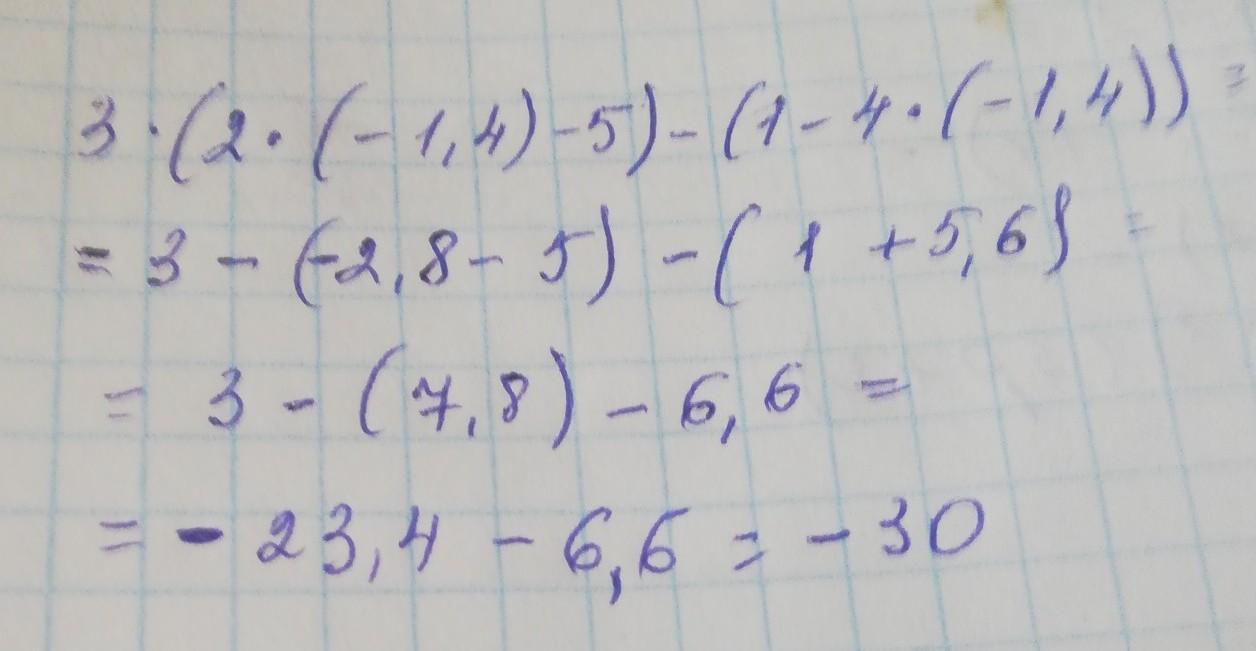 3 · (2 · (-1,4) -5) - (1 - 4 · (-1,4)) =
= 3 - (-2,8 - 5) - ( 1 + 5,6) =
= 3 - (7,8) - 6,6 =
= - 23,4 - 6,6 = - 30